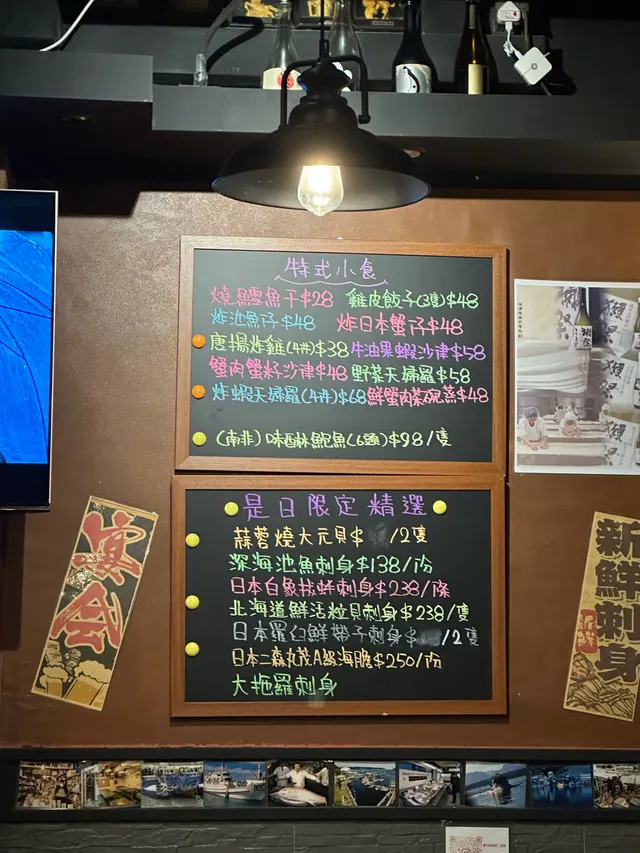 特式小食
燒鱈魚干$28 雞皮餃子(3隻)$48
炸池魚仔$48 炸日本蟹仔$48
唐揚炸雞(4件)$38 牛油果蝦沙津$58
蟹肉蟹籽沙津$48 野菜天婦羅$58
炸蝦天婦羅(4件)$68 鮮蟹肉茶碗蒸$48
(南非)味醂鮑魚(6頭)$98/隻
是日限定精選
蒜蓉燒大元貝$ /2隻
深海池魚刺身$138/份
日本白象拔蚌刺身$238/條
北海道鮮活粒貝刺身$238/隻
日本羅幻鮮帶子刺身$ /2隻
日本二森丸茂A級海膽$250/份
大拖羅刺身
宴会
新鮮刺身
新鮮
獺祭